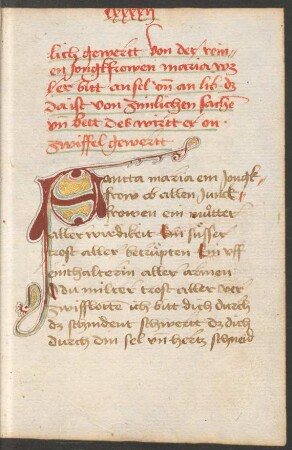 lxxxxij
lich gewertt von der rein,,
en Jungkfrowen maria wz
ler bitt an sel vnd an lib dz
da ist von zimlichen sachen
vnd bett des wirt er on
zwiffel gewertt
Sancta maria ein Jungk
frow ob allen Junck
frowen ein můtter
aller wirdikeit Ein süsser
trost aller betrüpten Ein vff
enthalterin aller armen
Du milter trost aller ver
zwifloten Ich bitt dich durch
dz schnident schwertt dz dich
durch din sel vn hertz schneid